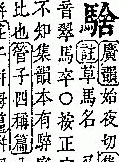 騇
廣韻始夜切
註草馬名
音翠馬卒○按正
不知集韻本有
比也管子四稱篇